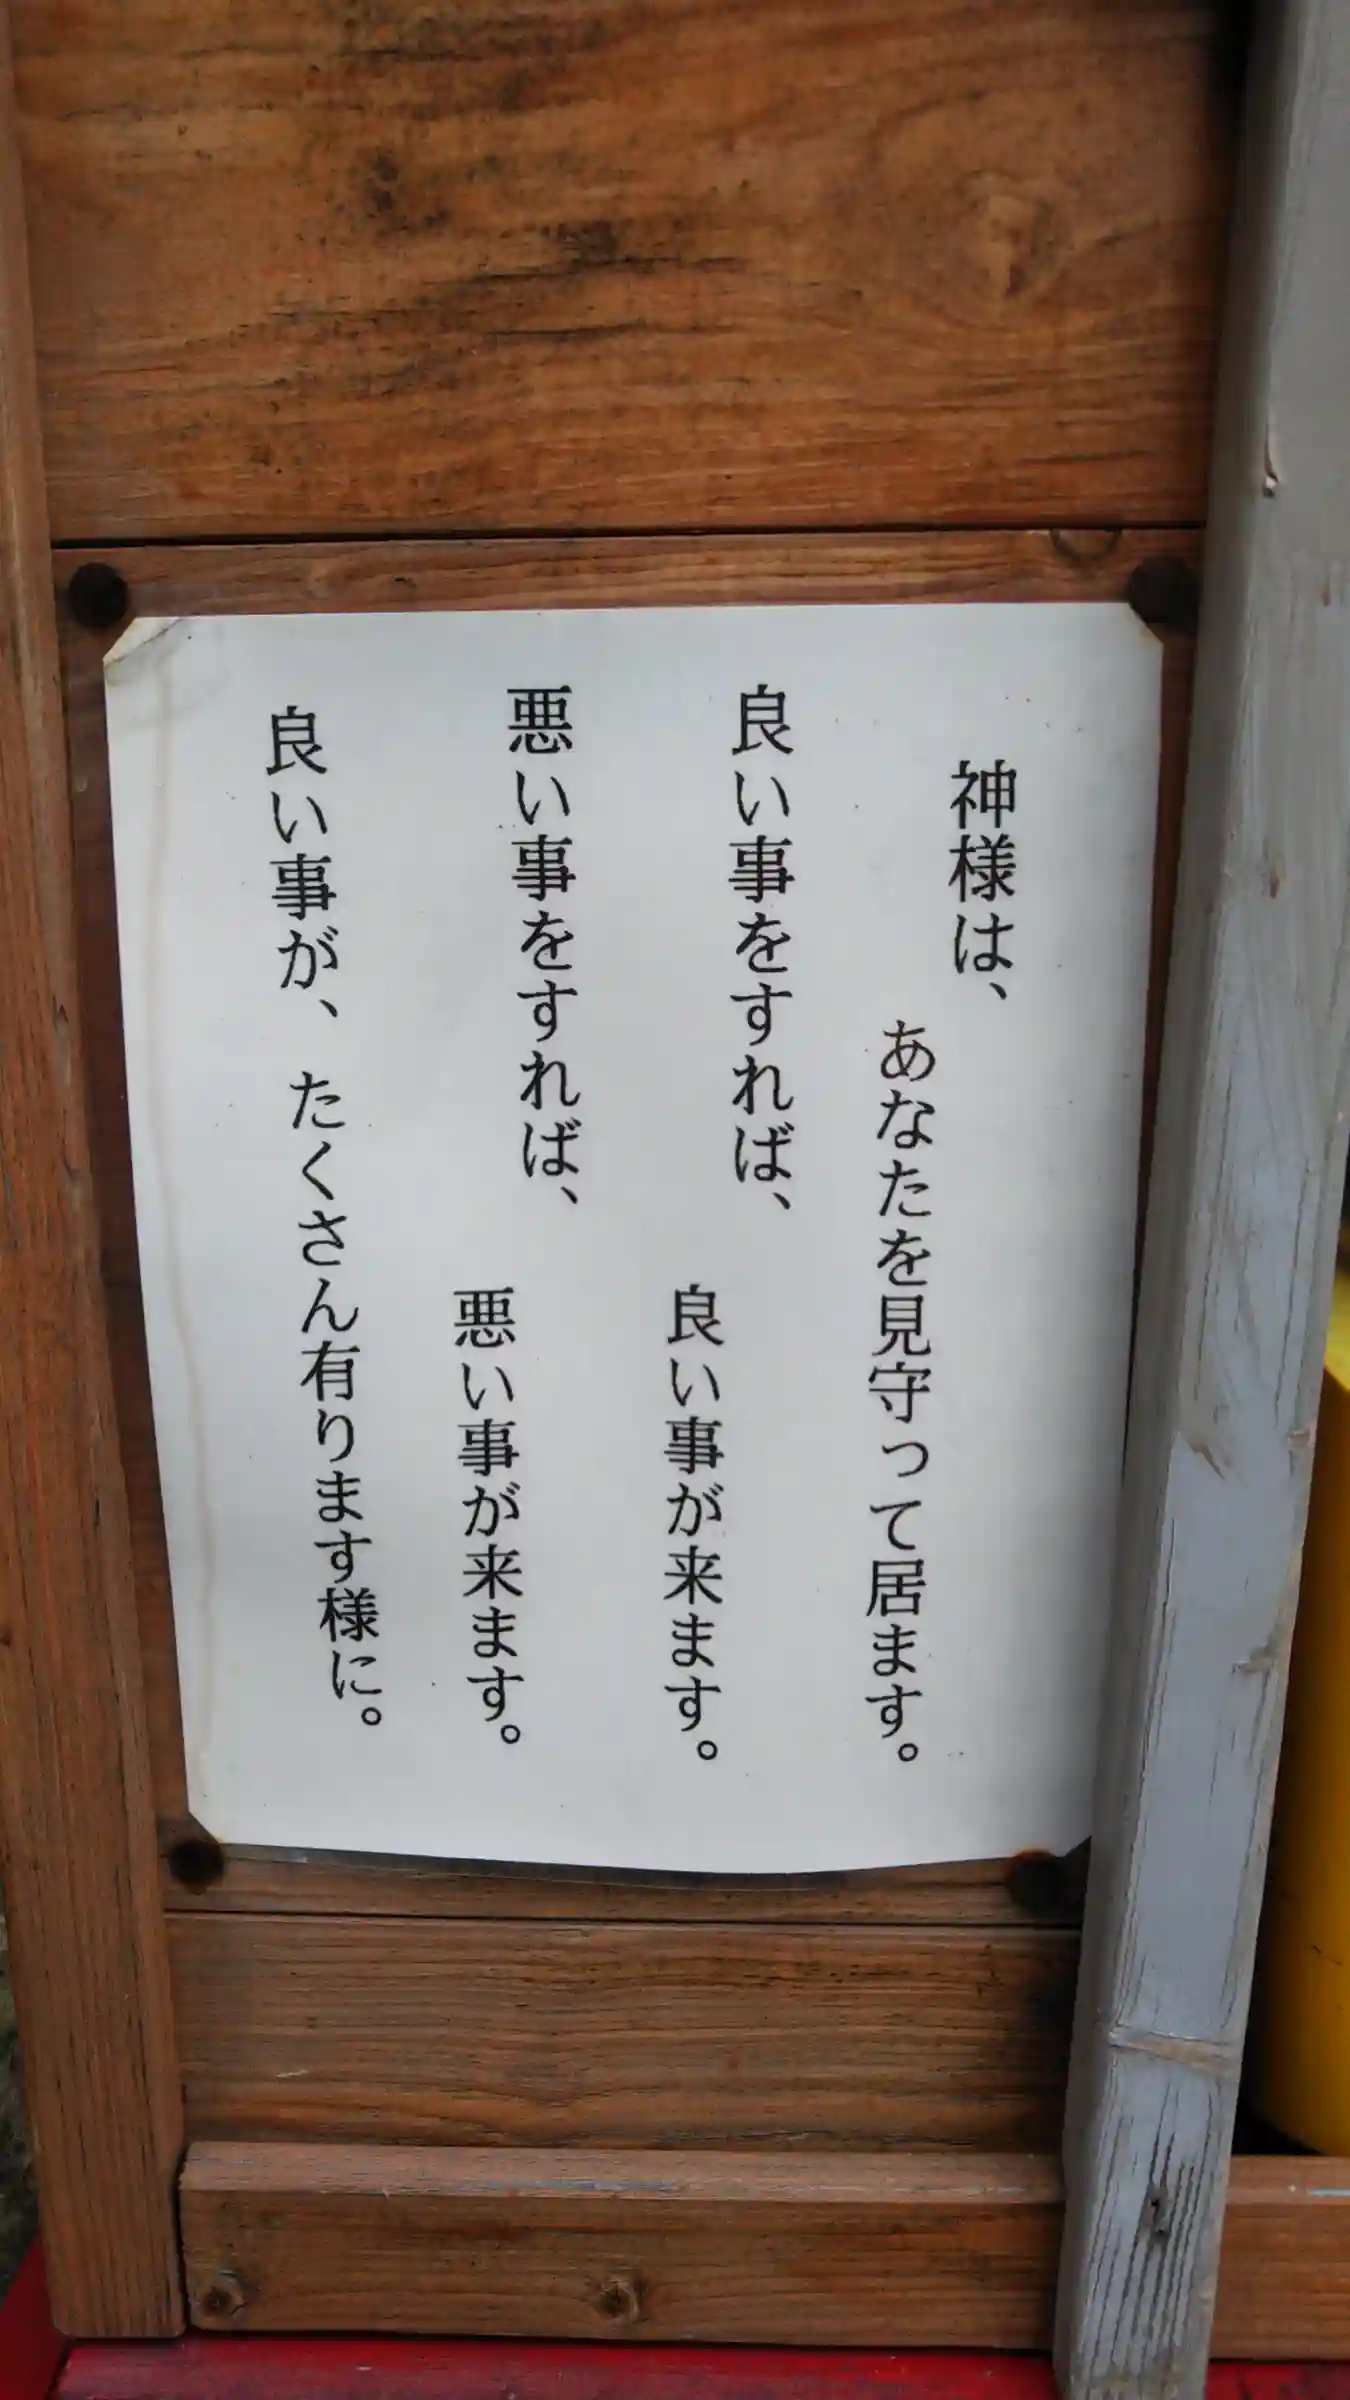 神様は、
あなたを見守って居ます。
良い事をすれば、
良い事が来ます。
悪い事をすれば、
悪い事が来ます。
良い事が、たくさん有ります様に。